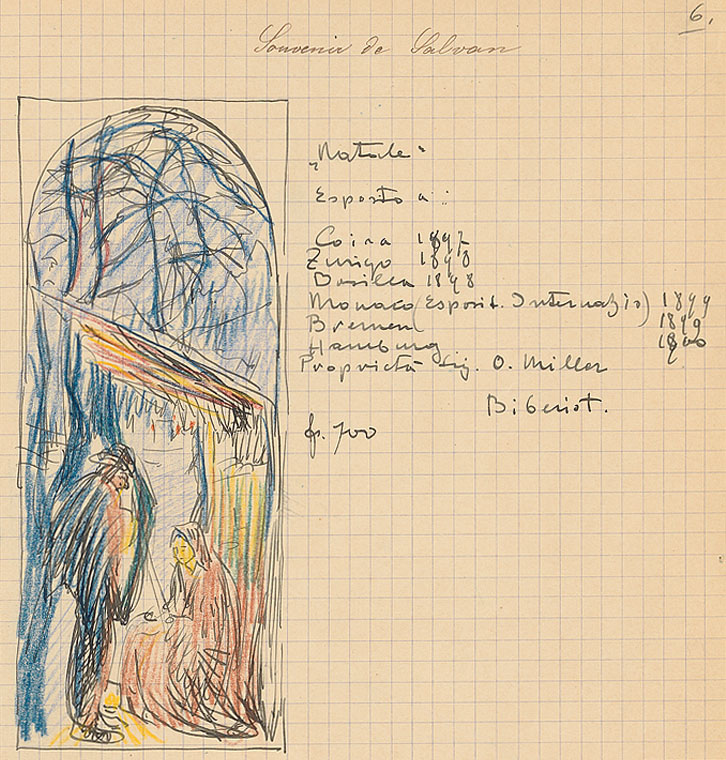 6.
Souvenir de Salvan
„Natale"
Esposto a :
Coira 1897
Zurigo 1898
Basilea 1898
Monaco (Esposit. Internazio) 1899
Bremen 1899
Hamburg 1900
Proprietà Sig. O. Miller
Biberist.
fr. 700